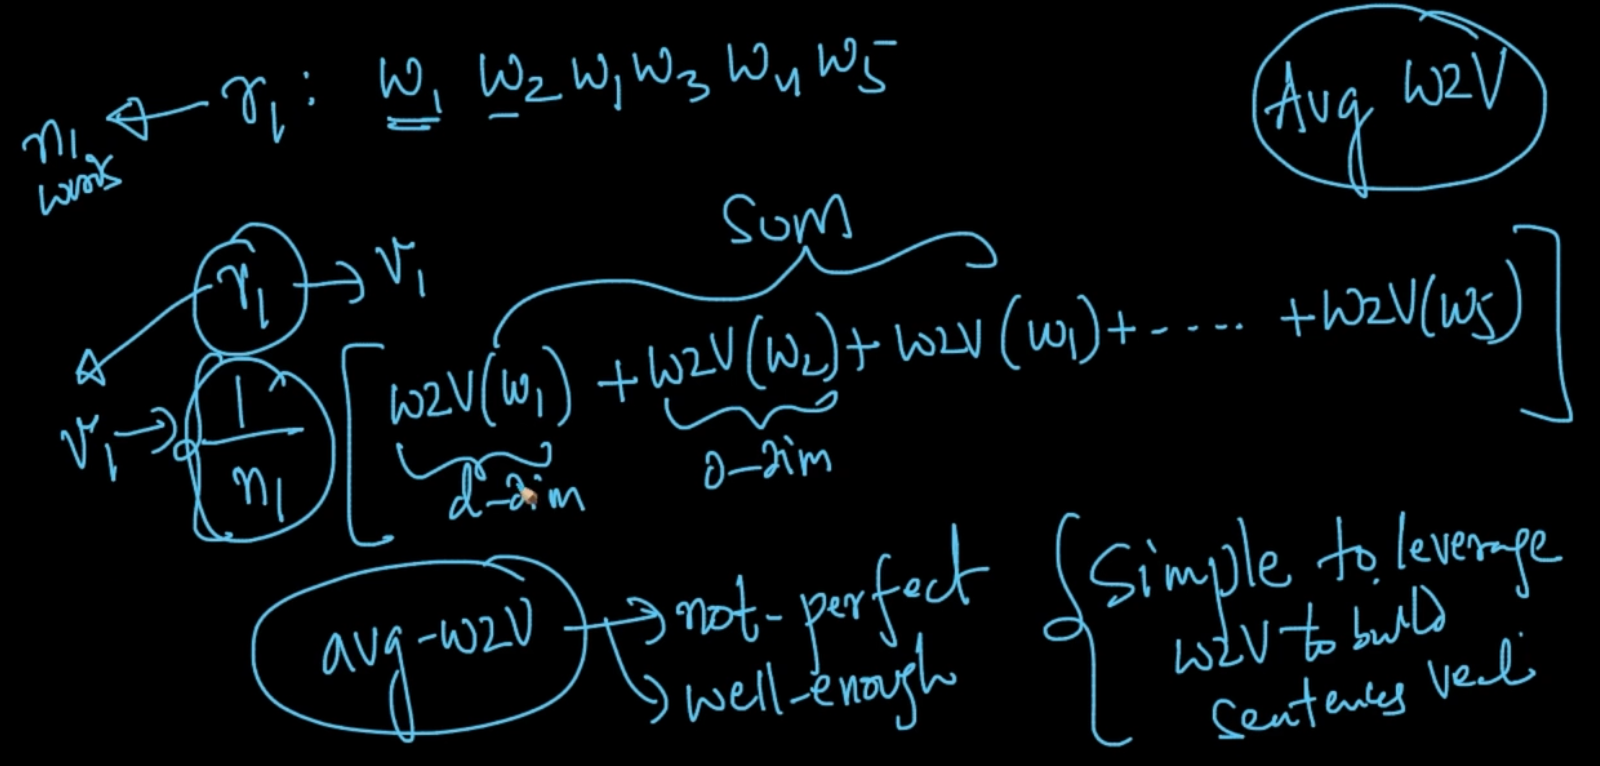 r₁ : w₁ w₂ w₁ w₃ w₄ w₅
Avg W2V
n₁
words
Sum
r₁ → v₁
v₁ → 1/n₁ [ w2v(w₁) + w2v(w₂) + w2v(w₁) + - .... + w2v(w₅) ]
d-dim
d-dim
avg-w2v → not-perfect
→ well-enough
Simple to leverage
w2v to build
Sentences